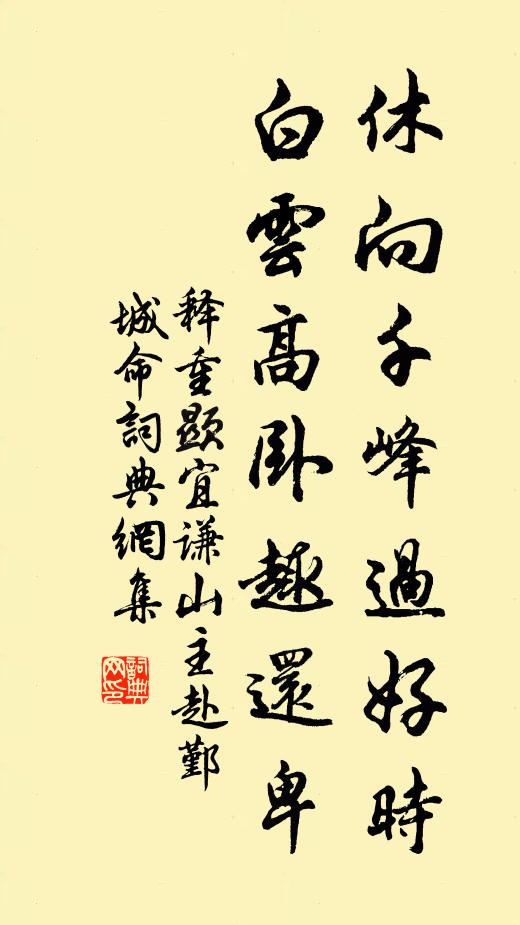 休向千峰過好時
白雲高卧趣還卑
释重顯宜谦山主赴鄞
城命詞典網集
詞典
网印